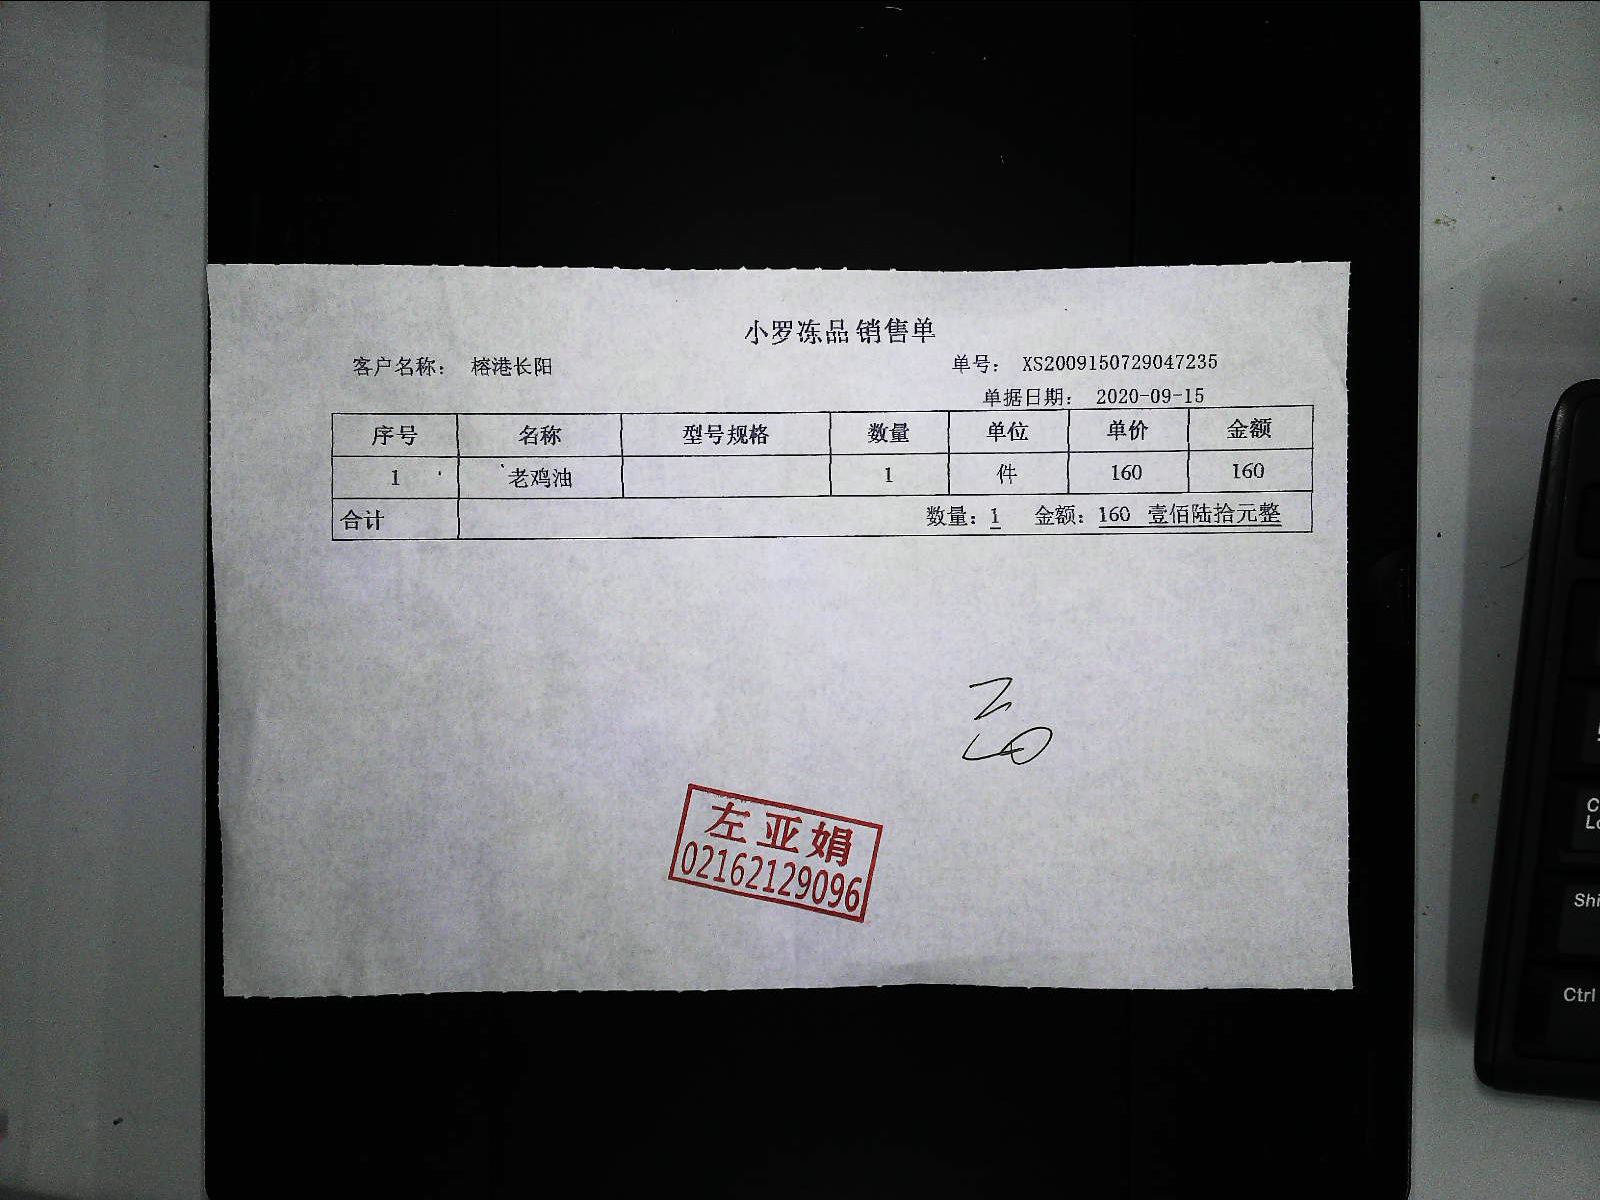 小罗冻品 销售单
客户名称： 榕港长阳 单号： XS2009150729047235
单据日期： 2020-09-15
序号 名称 型号规格 数量 单位 单价 金额
1 老鸡油 1 件 160 160
合计 数量：1 金额：160 壹佰陆拾元整
左亚娟
02162129096
Shi
Ctrl